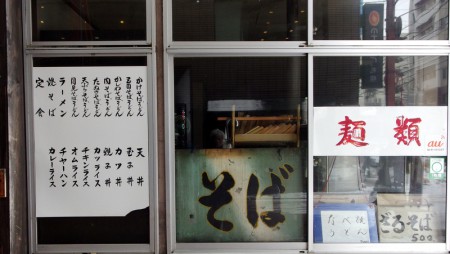 かけそばうどん
玉子そばうどん
かしわそばうどん
肉そばうどん
たぬきそばうどん
天ぷらそばうどん
月見そばうどん
ラーメン
焼そば
定食
天丼
玉子丼
カツ丼
親子丼
カツライス
チキンライス
オムライス
チャーハン
カレーライス
そば
麺類
au
ざるそば
500